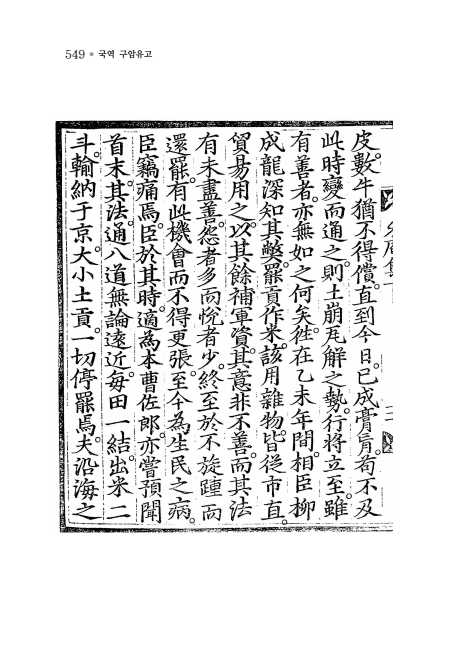 549 ● 국역 구암유고
皮。數牛猶不得償。直到今日。已成膏肓。苟不及
此時變而通之。則土崩瓦解之勢。行將立至。雖
有善者。亦無如之何矣。徃在乙未年間。相臣柳
成龍深知其弊。罷貢作米。該用雜物。皆從市直。
貿易用之。以其餘補軍資。其意非不善。而其法
有未盡善。怨者多而悅者少。終至於不旋踵而
還罷。有此機會而不得更張。至今爲生民之病。
臣竊痛焉。臣於其時。適爲本曹佐郎。亦嘗預聞
首末。其法。通八道無論遠近。每田一結。出米二
斗。輸納于京。大小土貢。一切停罷焉。夫沿海之